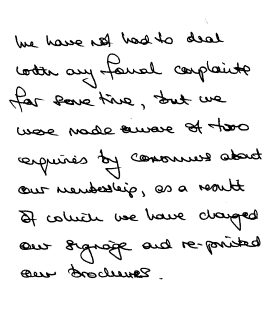 We have not had to deal
with any formal complaints
for some time, but we
were made aware of two
enquiries by consumers about
our membership, as a result
of which we have changed
our signage and re-printed
our brochures.